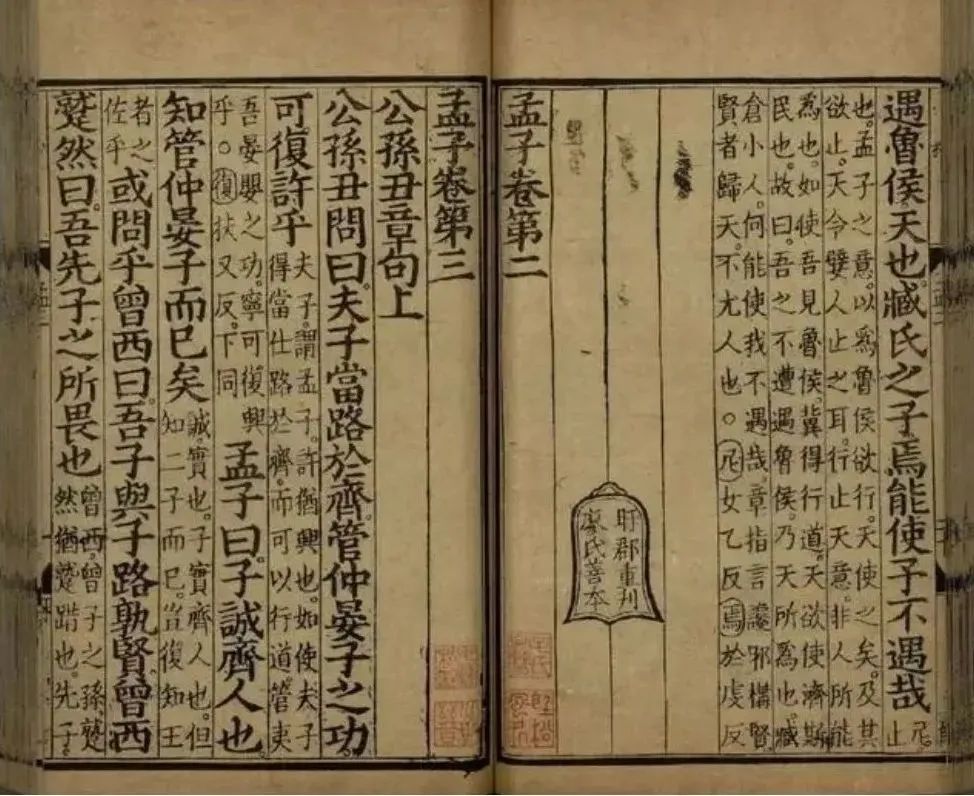 遇魯侯天也。臧氏之子焉能使予不遇哉
尼。
止
也。孟子之意。以爲魯侯欲行。天使之矣。及其
欲止。天令嬖人止之耳。行止天意。非人所能
爲也。如使吾見魯侯。冀得行道。天欲使濟斯
民也。故曰。吾之不遭遇魯侯。乃天所爲也。臧
倉小人。何能使我不遇哉。章指言讒邪構賢
賢者歸天。不尤人也。○尼女乙反焉於虔反
孟子卷第二
盱郡重刊
廖氏善本
孟子卷第三
公孫丑章句上
公孫丑問曰。夫子當路於齊。管仲晏子之功。
可復許乎
夫子。謂孟子。許猶興也。如使夫子
得當仕路於齊。而可以行道。管夷
吾晏嬰之功。寧可復興
乎。○復扶又反。下同
孟子曰。子誠齊人也
知管仲晏子而已矣
誠。實也。子實齊人也。但
知二子而已。豈復知王
者之
佐乎
或問乎曾西曰。吾子與子路孰賢。曾西
蹵然曰。吾先子之所畏也
曾西。曾子之孫。蹵
然猶蹵踖也。先子。